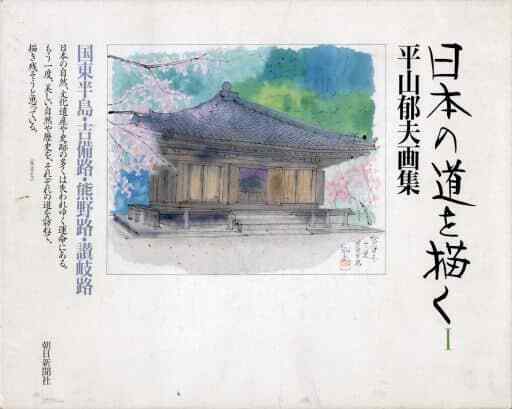 日本の道を描く I
平山郁夫画集
国東半島・吉備路・熊野路・讃岐路
日本の自然、文化遺産や史跡の多くは失われゆく運命にある。
もう一度、美しい自然や歴史を、それぞれの道を訪ねて、
描き残そうと思っている。
朝日新聞社